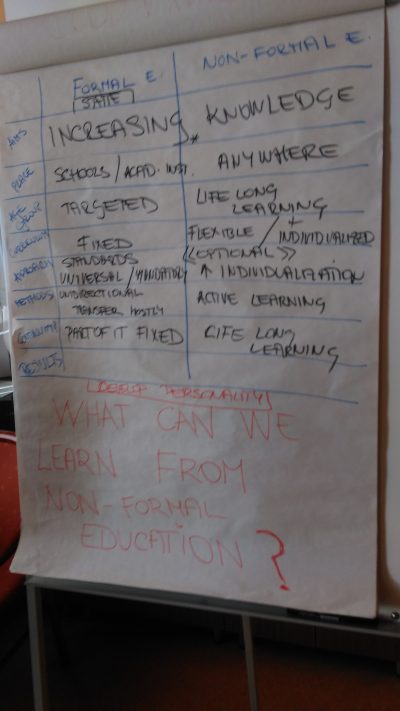 FORMAL E. NON-FORMAL E.
STATE
AIMS INCREASING * KNOWLEDGE
PLACE SCHOOLS / ACAD. INST. ANYWHERE
AGE GROUP TARGETED LIFE LONG LEARNING
FIXED FLEXIBLE / + INDIVIDUALIZED
APPROACH STANDARDS «OPTIONAL»
UNIVERSAL / MANDATORY ↑ INDIVIDUALIZATION
METHODS UNIDIRECTIONAL TRANSFER MOSTLY ACTIVE LEARNING
CONTINUITY PART OF IT FIXED LIFE LONG LEARNING
RESULTS
PERSONALITY
WHAT CAN WE
LEARN FROM
NON-FORMAL
EDUCATION?